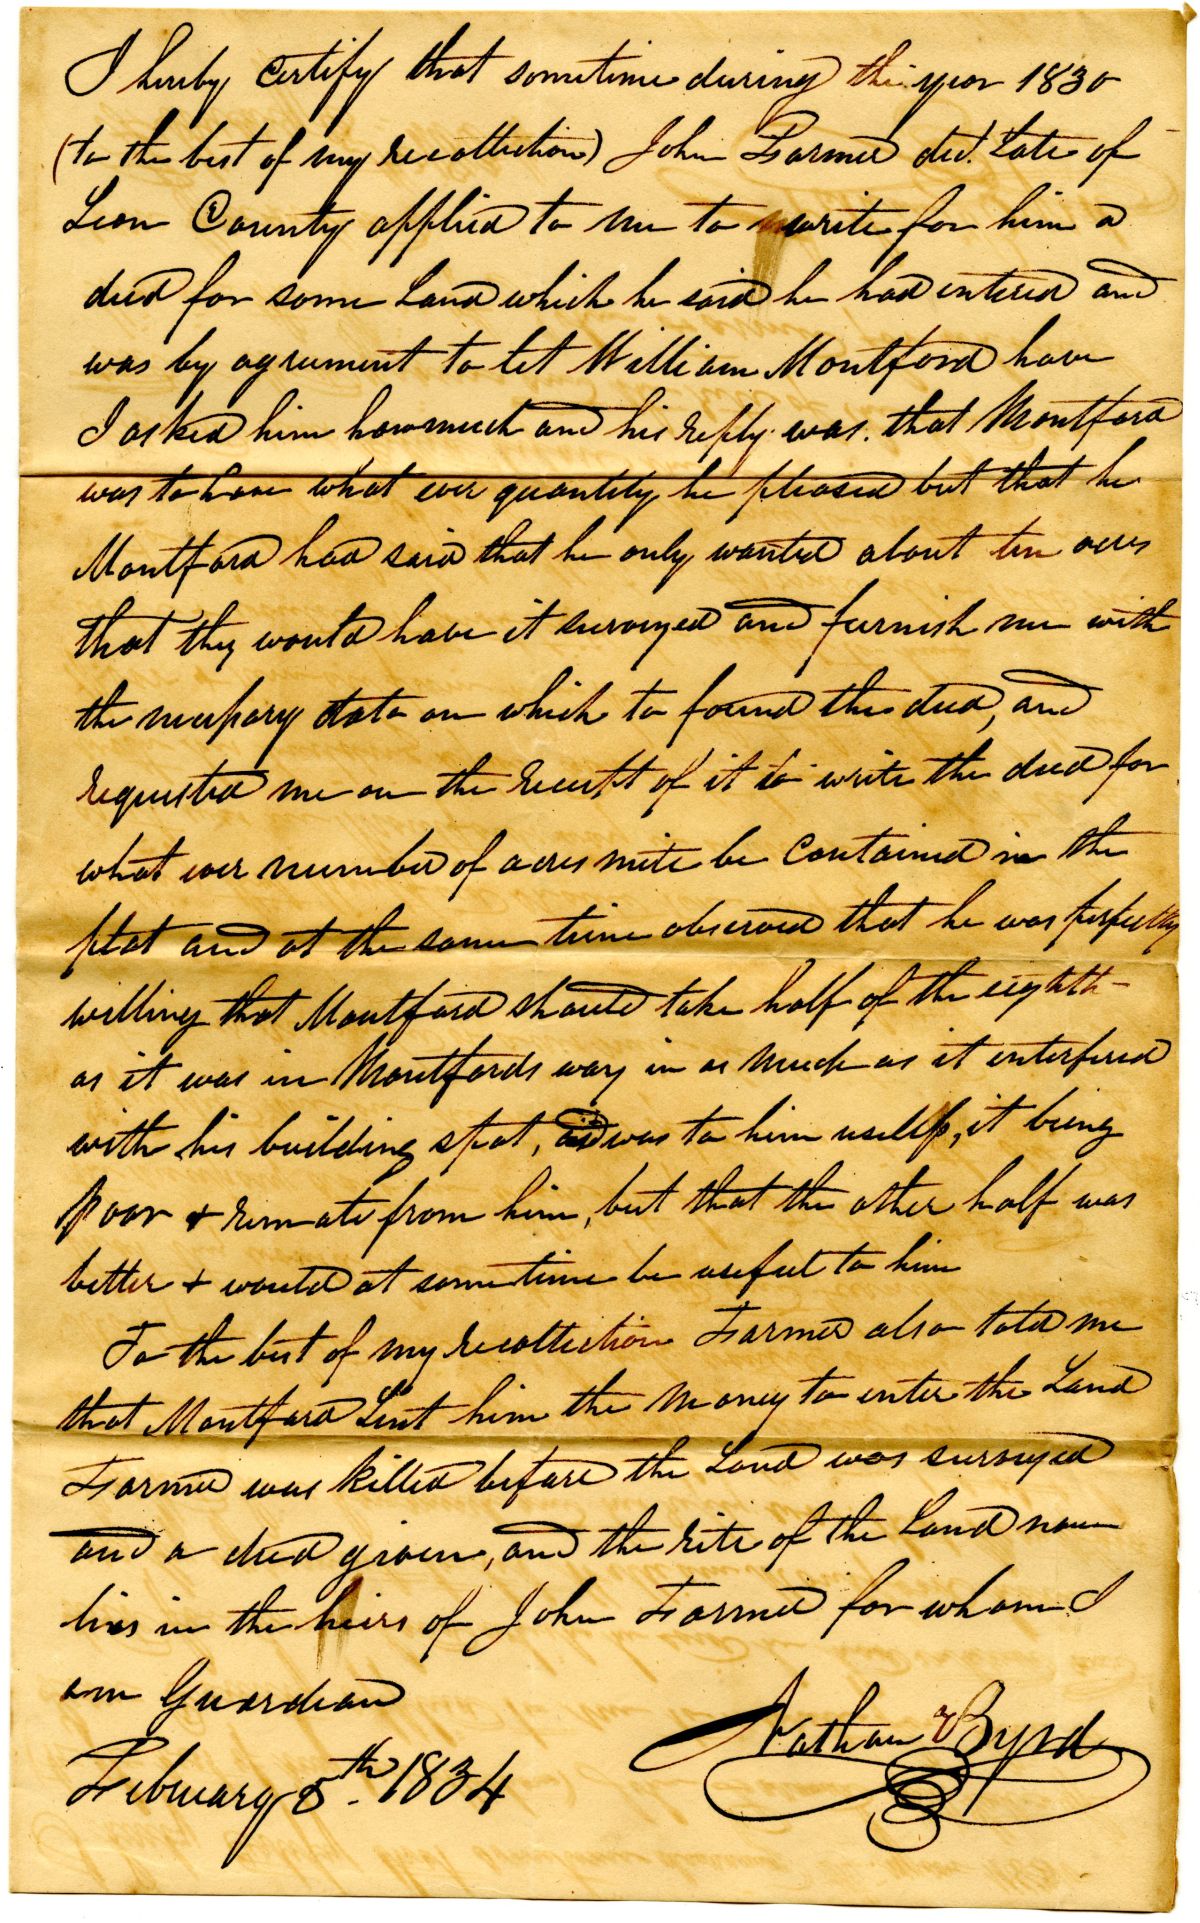 I hereby certify that sometime during the year 1830
(to the best of my recollection) John Farmer decd. Late of
Leon County applied to me to write for him a
deed for some Land which he said he had entered and
was by agreement to let William Montford have
I asked him how much and his reply was. that Montford
was to have what ever quantity he pleased but that he
Montford had said that he only wanted about ten acres
that they would have it surveyed and furnish me with
the necessary data on which to found the deed, and
requested me on the receipt of it to write the deed for
what ever number of acres mite be contained in the
plat and at the same time observed that he was perfectly
willing that Montford should take half of the eighth-
as it was in Montfords way in as much as it interfered
with his building spot, was to him useless, it being
poor & remote from him, but that the other half was
better & would at some time be useful to him
To the best of my recollection Farmer also told me
that Montford Lent him the money to enter the Land
Farmer was killed before the Land was surveyed
and a deed given, and the rite of the Land now
lies in the heirs of John Farmer for whom I
am Guardian
February 8th. 1834 Nathan Byrd